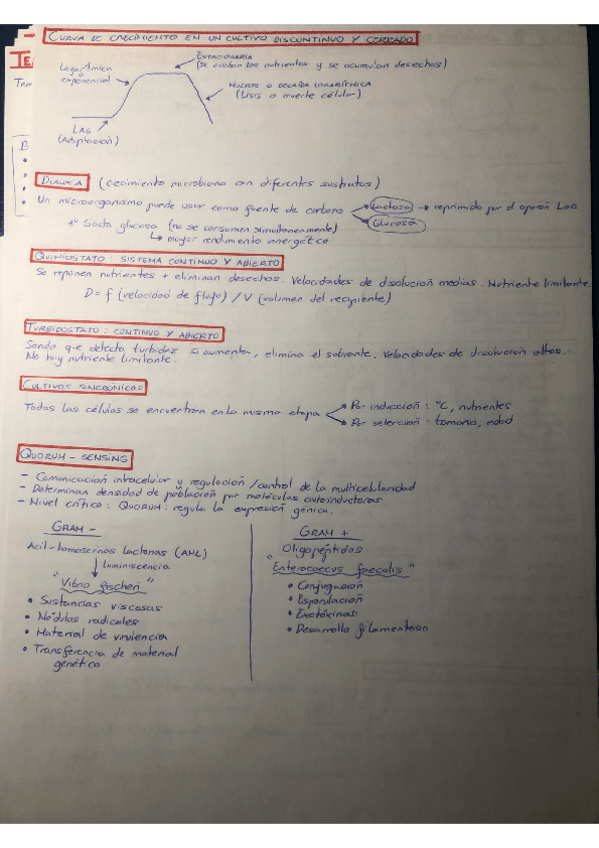 CURVA DE CRECIMIENTO EN UN CULTIVO DISCONTINUO Y CERRADO
ESTACIONARIA
(Se acaban los nutrientes y se acumulan desechos)
Logarítmica
o
exponencial
MUERTE O DECAÍDA LOGARÍTMICA
(Lisis o muerte celular)
LAG
(Adaptación)
DIAUXIA (crecimiento microbiano con diferentes sustratos)
Un microorganismo puede usar como fuente de carbono
Lactosa → reprimido por el operón Lac
Glucosa
1º Gasta glucosa (no se consumen simultaneamente)
↳ mayor rendimiento energético
QUIMIOSTATO: SISTEMA CONTINUO Y ABIERTO
Se reponen nutrientes + eliminan desechos. Velocidades de disolución medias. Nutriente limitante.
D = f (velocidad de flujo) / V (volumen del recipiente)
TURBIDOSTATO: CONTINUO Y ABIERTO
Sonda que detecta turbidez si aumenta, elimina el sobrante. Velocidades de disolución altas.
No hay nutriente limitante.
CULTIVOS SINCRÓNICOS
Todas las células se encuentran en la misma etapa
Por inducción: ºC, nutrientes
Por selección: tamaño, edad
QUORUM-SENSING
- Comunicación intracelular y regulación/control de la multicelularidad
- Determinan densidad de población por moléculas autoinductoras
- Nivel crítico: QUORUM: regula la expresión génica.
GRAM -
Acil-homoserinas lactonas (AHL)
↓ luminiscencia
"Vibrio fischeri"
• Sustancias viscosas
• Nódulos radicales
• Material de virulencia
• Transferencia de material
genético
GRAM +
Oligopéptidos
"Enterococcus faecalis"
• Conjugación
• Esporulación
• Exotoxinas
• Desarrollo filamentoso